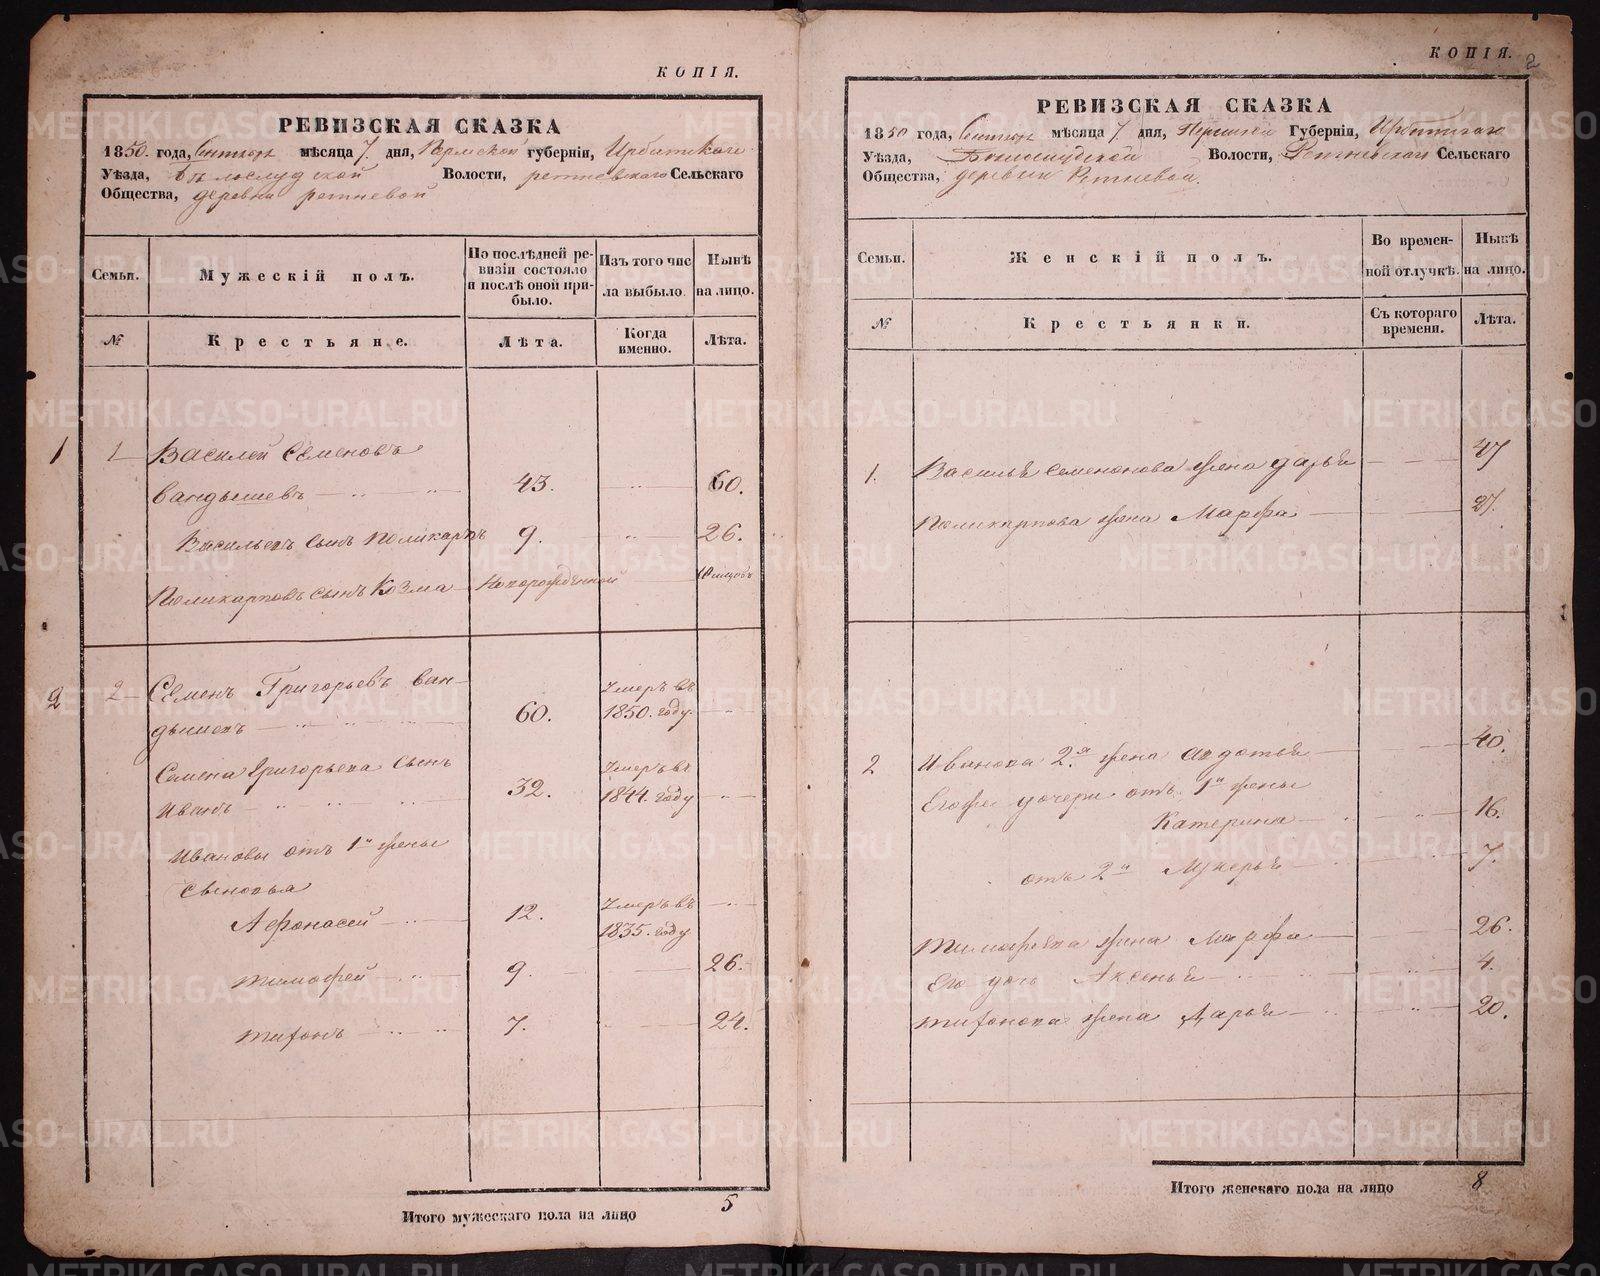 КОПІЯ.
РЕВИЗСКАЯ СКАЗКА
1850. года, Сентябр мѣсяца 7. дня, Пермской губерніи, Ирбитскаго
Уѣзда, Бѣлослудской Волости, ретневскаго Сельскаго
Общества, деревни ретневой
Семьи. Мужескій полъ. По послѣдней ревизіи состояло и послѣ оной прибыло. Изъ того числа выбыло. Нынѣ на лицо.
№ Крестьяне. Лѣта. Когда именно. Лѣта.
1 1 Василей Семеновъ
вандышевъ 43. 60.
Васильевъ сынъ поликарпъ 9. 26.
Поликарповъ сынъ Козма Новорожденной
2 2 Семенъ Григорьевъ ван- Умеръ въ
дышевъ 60. 1850. году.
Семена Григорьева сынъ Умеръ въ
Иванъ 32. 1844. году
Ивановы от 1й жены
сыновья
Афонасей 12. Умеръ въ 1835. году
тимофей 9. 26.
тифонъ 7. 24.
Итого мужескаго пола на лицо 5
КОПІЯ. 2
РЕВИЗСКАЯ СКАЗКА
1850 года, Сентябр мѣсяца 7. дня, Пермской Губерніи, Ирбитскаго
Уѣзда, Бѣлослудской Волости, Ретневскаго Сельскаго
Общества, деревни Ретневой.
Семьи. Женскій полъ. Во временной отлучкѣ. Нынѣ на лицо.
№ Крестьянки. Съ котораго времени. Лѣта.
1. Василья семенова жена дарья 47
Поликарпова жена Марфа 27.
2 Иванова 2я жена авдотья 40.
Егоже дочери отъ 1й жены
Катерина 16.
отъ 2й Лукерья 7.
тимофеева жена Марфа 26.
Его дочь Аксенья 4.
тифонова жена Дарья 20.
Итого женскаго пола на лицо 8
METRIKI.GASO-URAL.RU